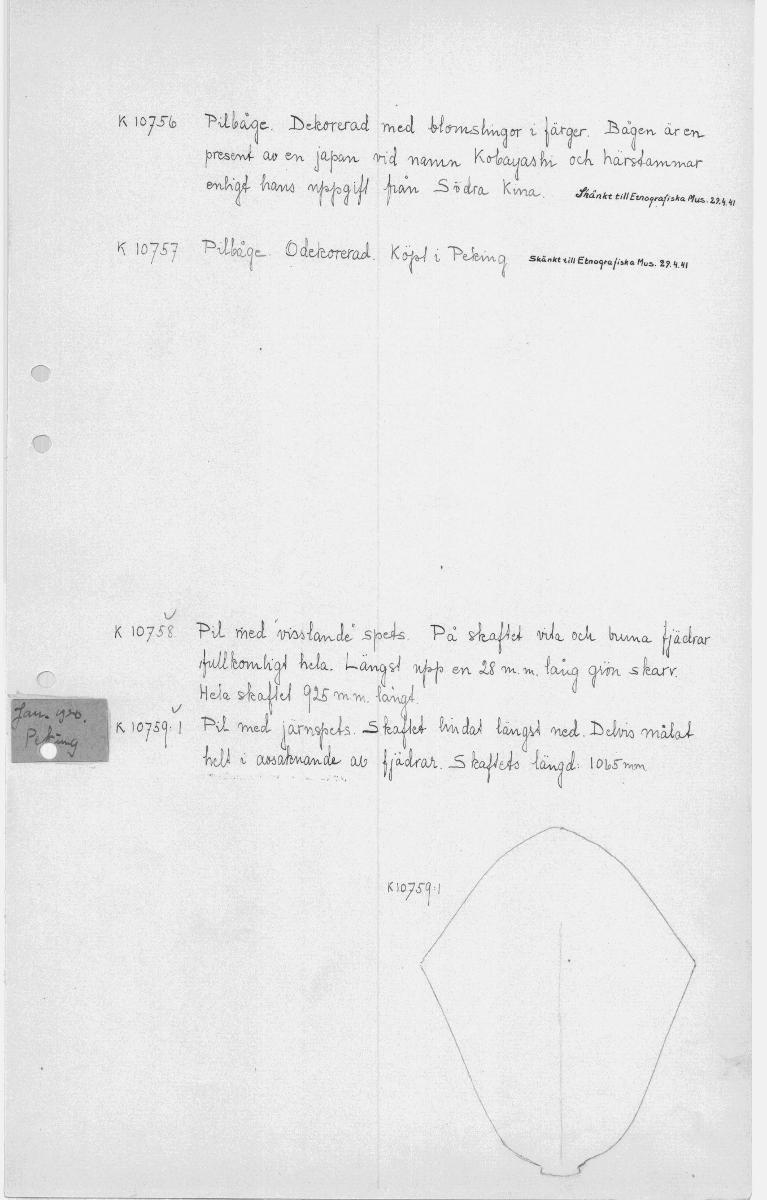 K 10756 Pilbåge. Dekorerad med blomslingor i färger. Bågen är en
present av en japan vid namn Kobayashi och härstammar
enligt hans uppgift från Södra Kina. Skänkt till Etnografiska Mus. 29.4.41
K 10757 Pilbåge. Odekorerad. Köpt i Peking Skänkt till Etnografiska Mus. 29.4.41
K 10758 Pil med "visslande" spets. På skaftet vita och bruna fjädrar
fullkomligt hela. Längst upp en 28 m.m. lång grön skarv.
Hela skaftet 925 m m. långt.
Jan. 1930.
Peking
K 10759:1 Pil med järnspets. Skaftet lindat längst ned. Delvis målat
helt i avsaknande av fjädrar. Skaftets längd: 1065 mm
K10759:1